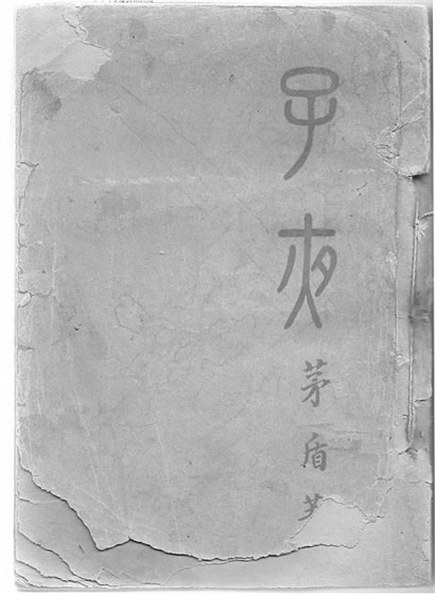 子夜
茅盾